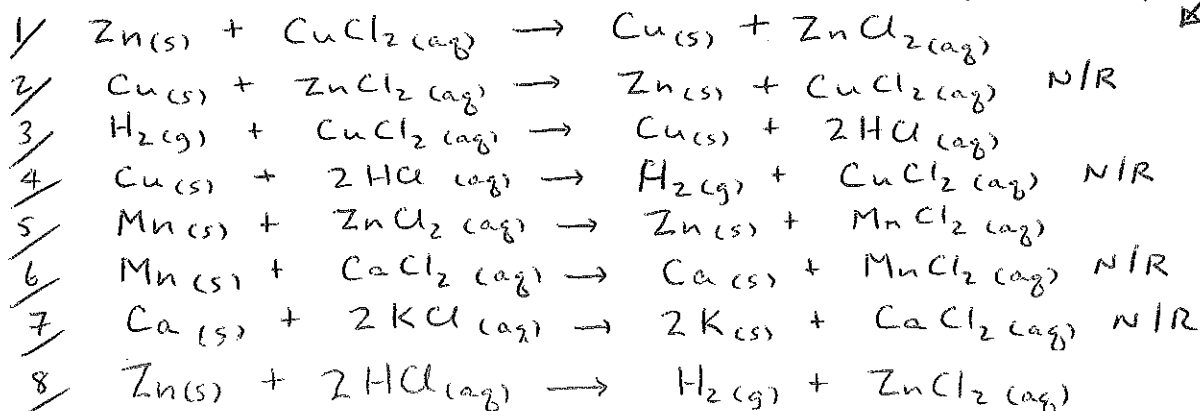 1/ Zn(s) + CuCl2 (aq) → Cu(s) + ZnCl2(aq)
2/ Cu(s) + ZnCl2 (aq) → Zn(s) + CuCl2 (aq) N/R
3/ H2(g) + CuCl2 (aq) → Cu(s) + 2HCl (aq)
4/ Cu(s) + 2HCl (aq) → H2(g) + CuCl2 (aq) N/R
5/ Mn(s) + ZnCl2 (aq) → Zn(s) + MnCl2 (aq)
6/ Mn(s) + CaCl2 (aq) → Ca(s) + MnCl2 (aq) N/R
7/ Ca(s) + 2KCl (aq) → 2K(s) + CaCl2 (aq) N/R
8/ Zn(s) + 2HCl(aq) → H2(g) + ZnCl2 (aq)